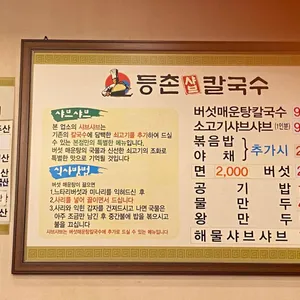 등촌 샤브 칼국수
샤브샤브
본 업소의 샤브샤브는
기존의 칼국수에 담백한 쇠고기를 추가하여 드실
수 있는 본점만의 특별한 메뉴입니다.
버섯 매운탕의 국물과 신선한 쇠고기의 조화로
특별한 맛으로 기억될 것입니다
식사방법
버섯 매운탕이 끓으면
1.느타리버섯과 미나리를 익혀드신 후
2.사리를 넣어 끓이면서 드십니다
3.사리와 익힌 감자를 건져드시고 나면 국물은
아주 조금만 남긴 후 중간불에 밥을 볶으시고
불을 끄십니다
샤브샤브는 버섯매운탕칼국수에 추가로 드실 수 있는 메뉴입니다
버섯매운탕칼국수 9
소고기샤브샤브 (1인분)
볶음밥
야 채 추가시 2
면 2,000 버섯 2
공 기 밥
물 만 두
왕 만 두
해물샤브샤브
산
산
산